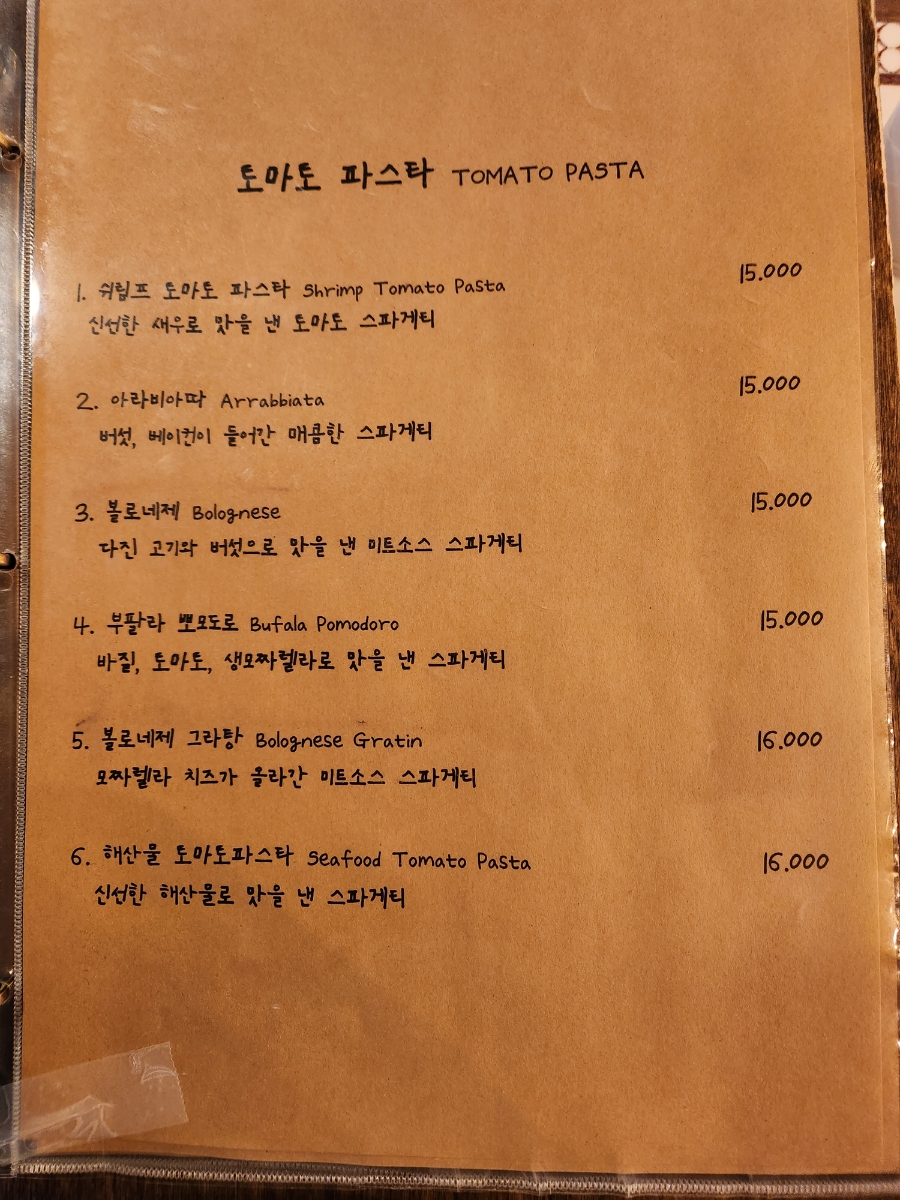 토마토 파스타 TOMATO PASTA
1. 쉬림프 토마토 파스타 Shrimp Tomato Pasta 15.000
신선한 새우로 맛을 낸 토마토 스파게티
2. 아라비아따 Arrabbiata 15.000
버섯, 베이컨이 들어간 매콤한 스파게티
3. 볼로네제 Bolognese 15.000
다진 고기와 버섯으로 맛을 낸 미트소스 스파게티
4. 부팔라 뽀모도로 Bufala Pomodoro 15.000
바질, 토마토, 생모짜렐라로 맛을 낸 스파게티
5. 볼로네제 그라탕 Bolognese Gratin 16.000
모짜렐라 치즈가 올라간 미트소스 스파게티
6. 해산물 토마토파스타 Seafood Tomato Pasta 16.000
신선한 해산물로 맛을 낸 스파게티